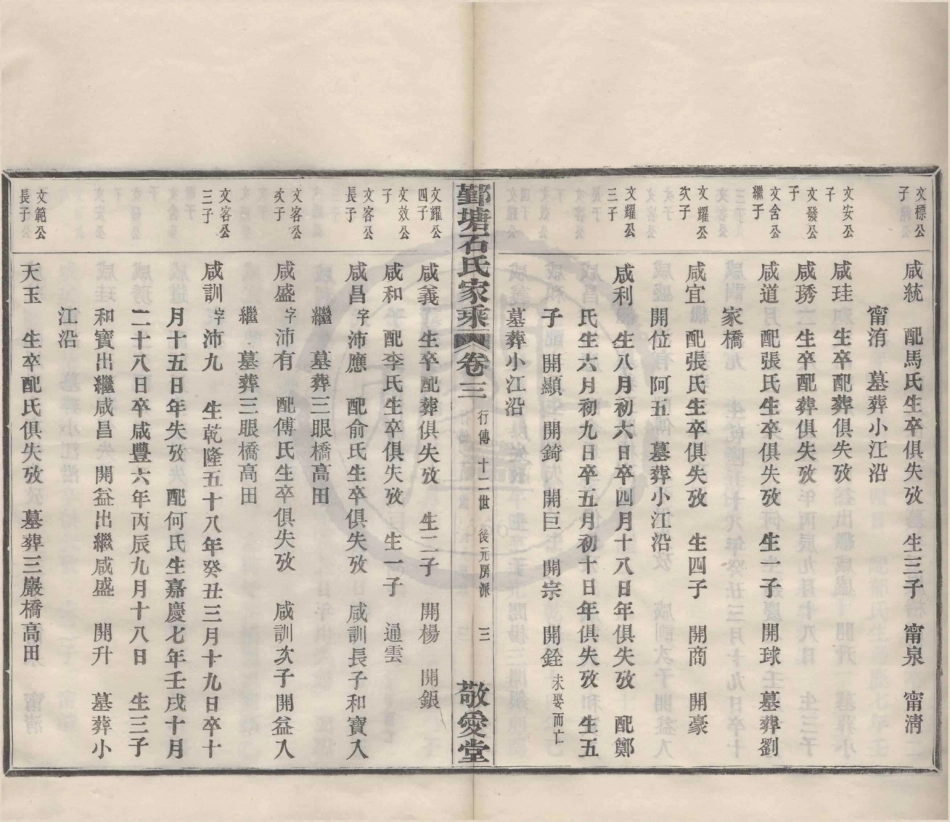 文標公子
咸統　配馬氏生卒俱失攷　生三子　甯泉　甯清
甯淯　墓葬小江沿
文安公子
咸珪　生卒配葬俱失攷
文發公子
咸琇　生卒配葬俱失攷
文含公繼子
咸道　配張氏生卒俱失攷　生一子　開球　墓葬劉
家橋
文耀公次子
咸宜　配張氏生卒俱失攷　生四子　開商　開豪
開位　阿五　墓葬小江沿
文耀公三子
咸利　生八月初六日卒四月十八日年俱失攷　配鄭
氏生六月初九日卒五月初十日年俱失攷　生五
子　開顯　開錡　開巨　開宗　開銓未娶而亡
墓葬小江沿
鄞塘石氏家乘　卷三　行傳　十二世　後元房派　三　敬愛堂
文耀公四子
咸義　生卒配葬俱失攷　生二子　開楊　開銀
文效公子
咸和　配李氏生卒俱失攷　生一子　通雲
文客公長子
咸昌字沛應　配俞氏生卒俱失攷　咸訓長子和寶入
繼　墓葬三眼橋高田
文客公次子
咸盛字沛有　配傅氏生卒俱失攷　咸訓次子開益入
繼　墓葬三眼橋高田
文客公三子
咸訓字沛九　生乾隆五十八年癸丑三月十九日卒十
月十五日年失攷　配何氏生嘉慶七年壬戌十月
二十八日卒咸豐六年丙辰九月十八日　生三子
和寶出繼咸昌　開益出繼咸盛　開升　墓葬小
江沿
文範公長子
天玉　生卒配氏俱失攷　墓葬三巖橋高田